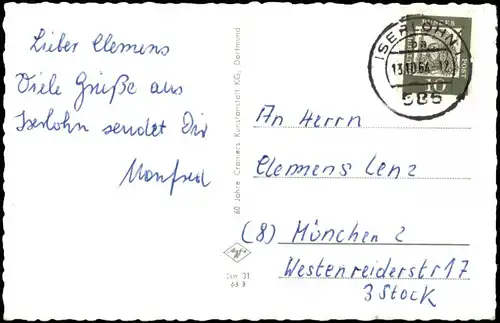 Lieber Clemens
Viele Grüße aus
Iserlohn sendet Dir
Manfred
60 Jahre Cramers Kunstanstalt KG, Dortmund
Agfa
Isn 31
63 9
ISERLOHN 1
13.10.64-12
586
BUNDES
POST
10
An Herrn
Clemens Lenz
(8) München 2
Westenreiderstr 17
3 Stock